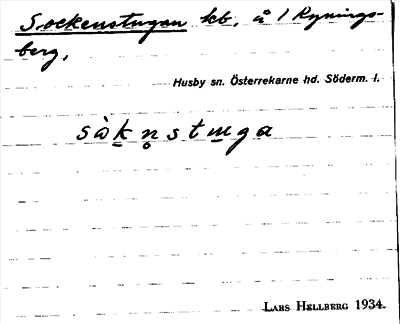 Sockenstugan kb. å 1 Rynings-
berg,
Husby sn. Österrekarne hd. Söderm. l.
sàk̲n̥stu̲ga
LARS HELLBERG 1934.